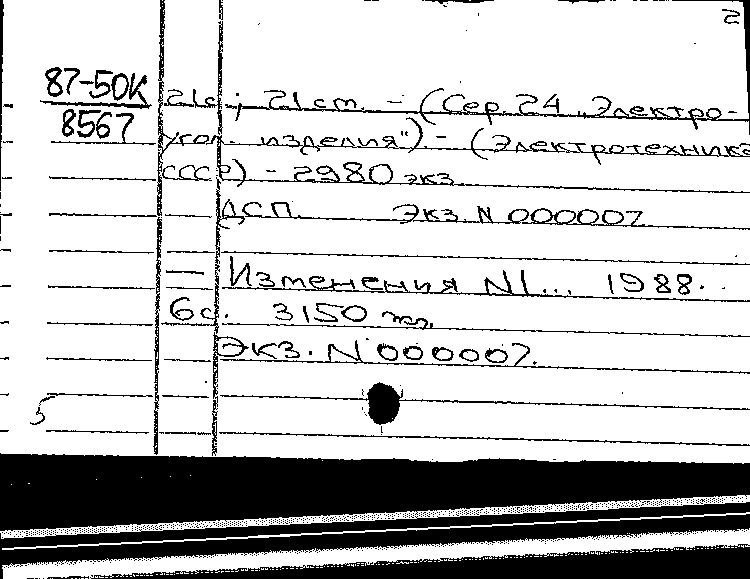 2
87-50К
8567
21с; 21 cm. - (Сер. 24 „Электро-
угол. изделия") - (Электротехника
СССР) - 2980 экз.
ДСП. Экз. N 000007
— Изменения N1... 1988.
6с. 3150 экз.
Экз. N 000007.
5